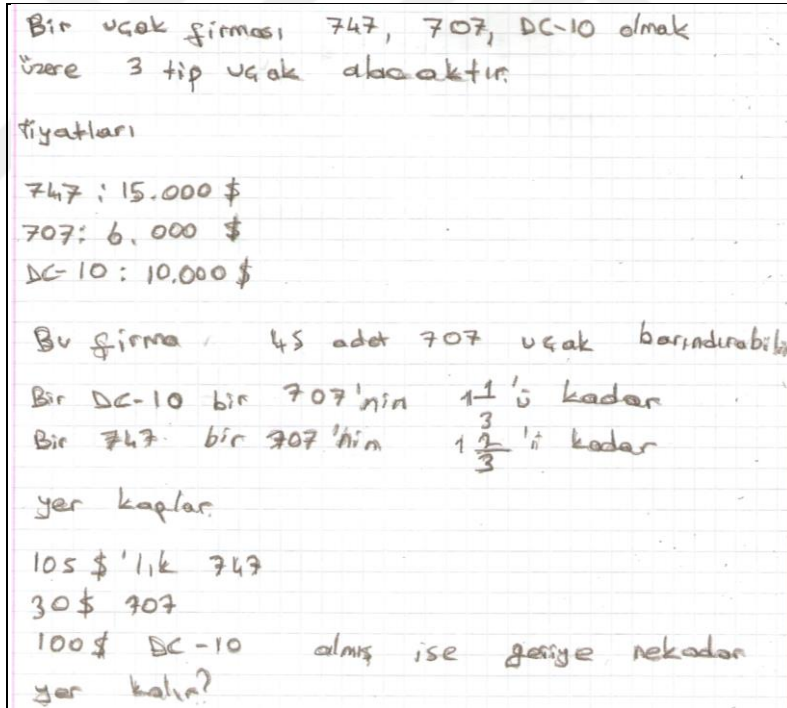 Bir uçak firması 747, 707, DC-10 olmak
üzere 3 tip uçak alacaktır.
fiyatları
747 : 15.000 $
707: 6.000 $
DC-10 : 10.000 $
Bu firma 45 adet 707 uçak barındırabilir
Bir DC-10 bir 707'nin 1 1/3 'ü kadar
Bir 747 bir 707'nin 1 2/3 'ü kadar
yer kaplar.
105 $'lık 747
30$ 707
100$ DC-10 almış ise geriye nekadar
yer kalır?